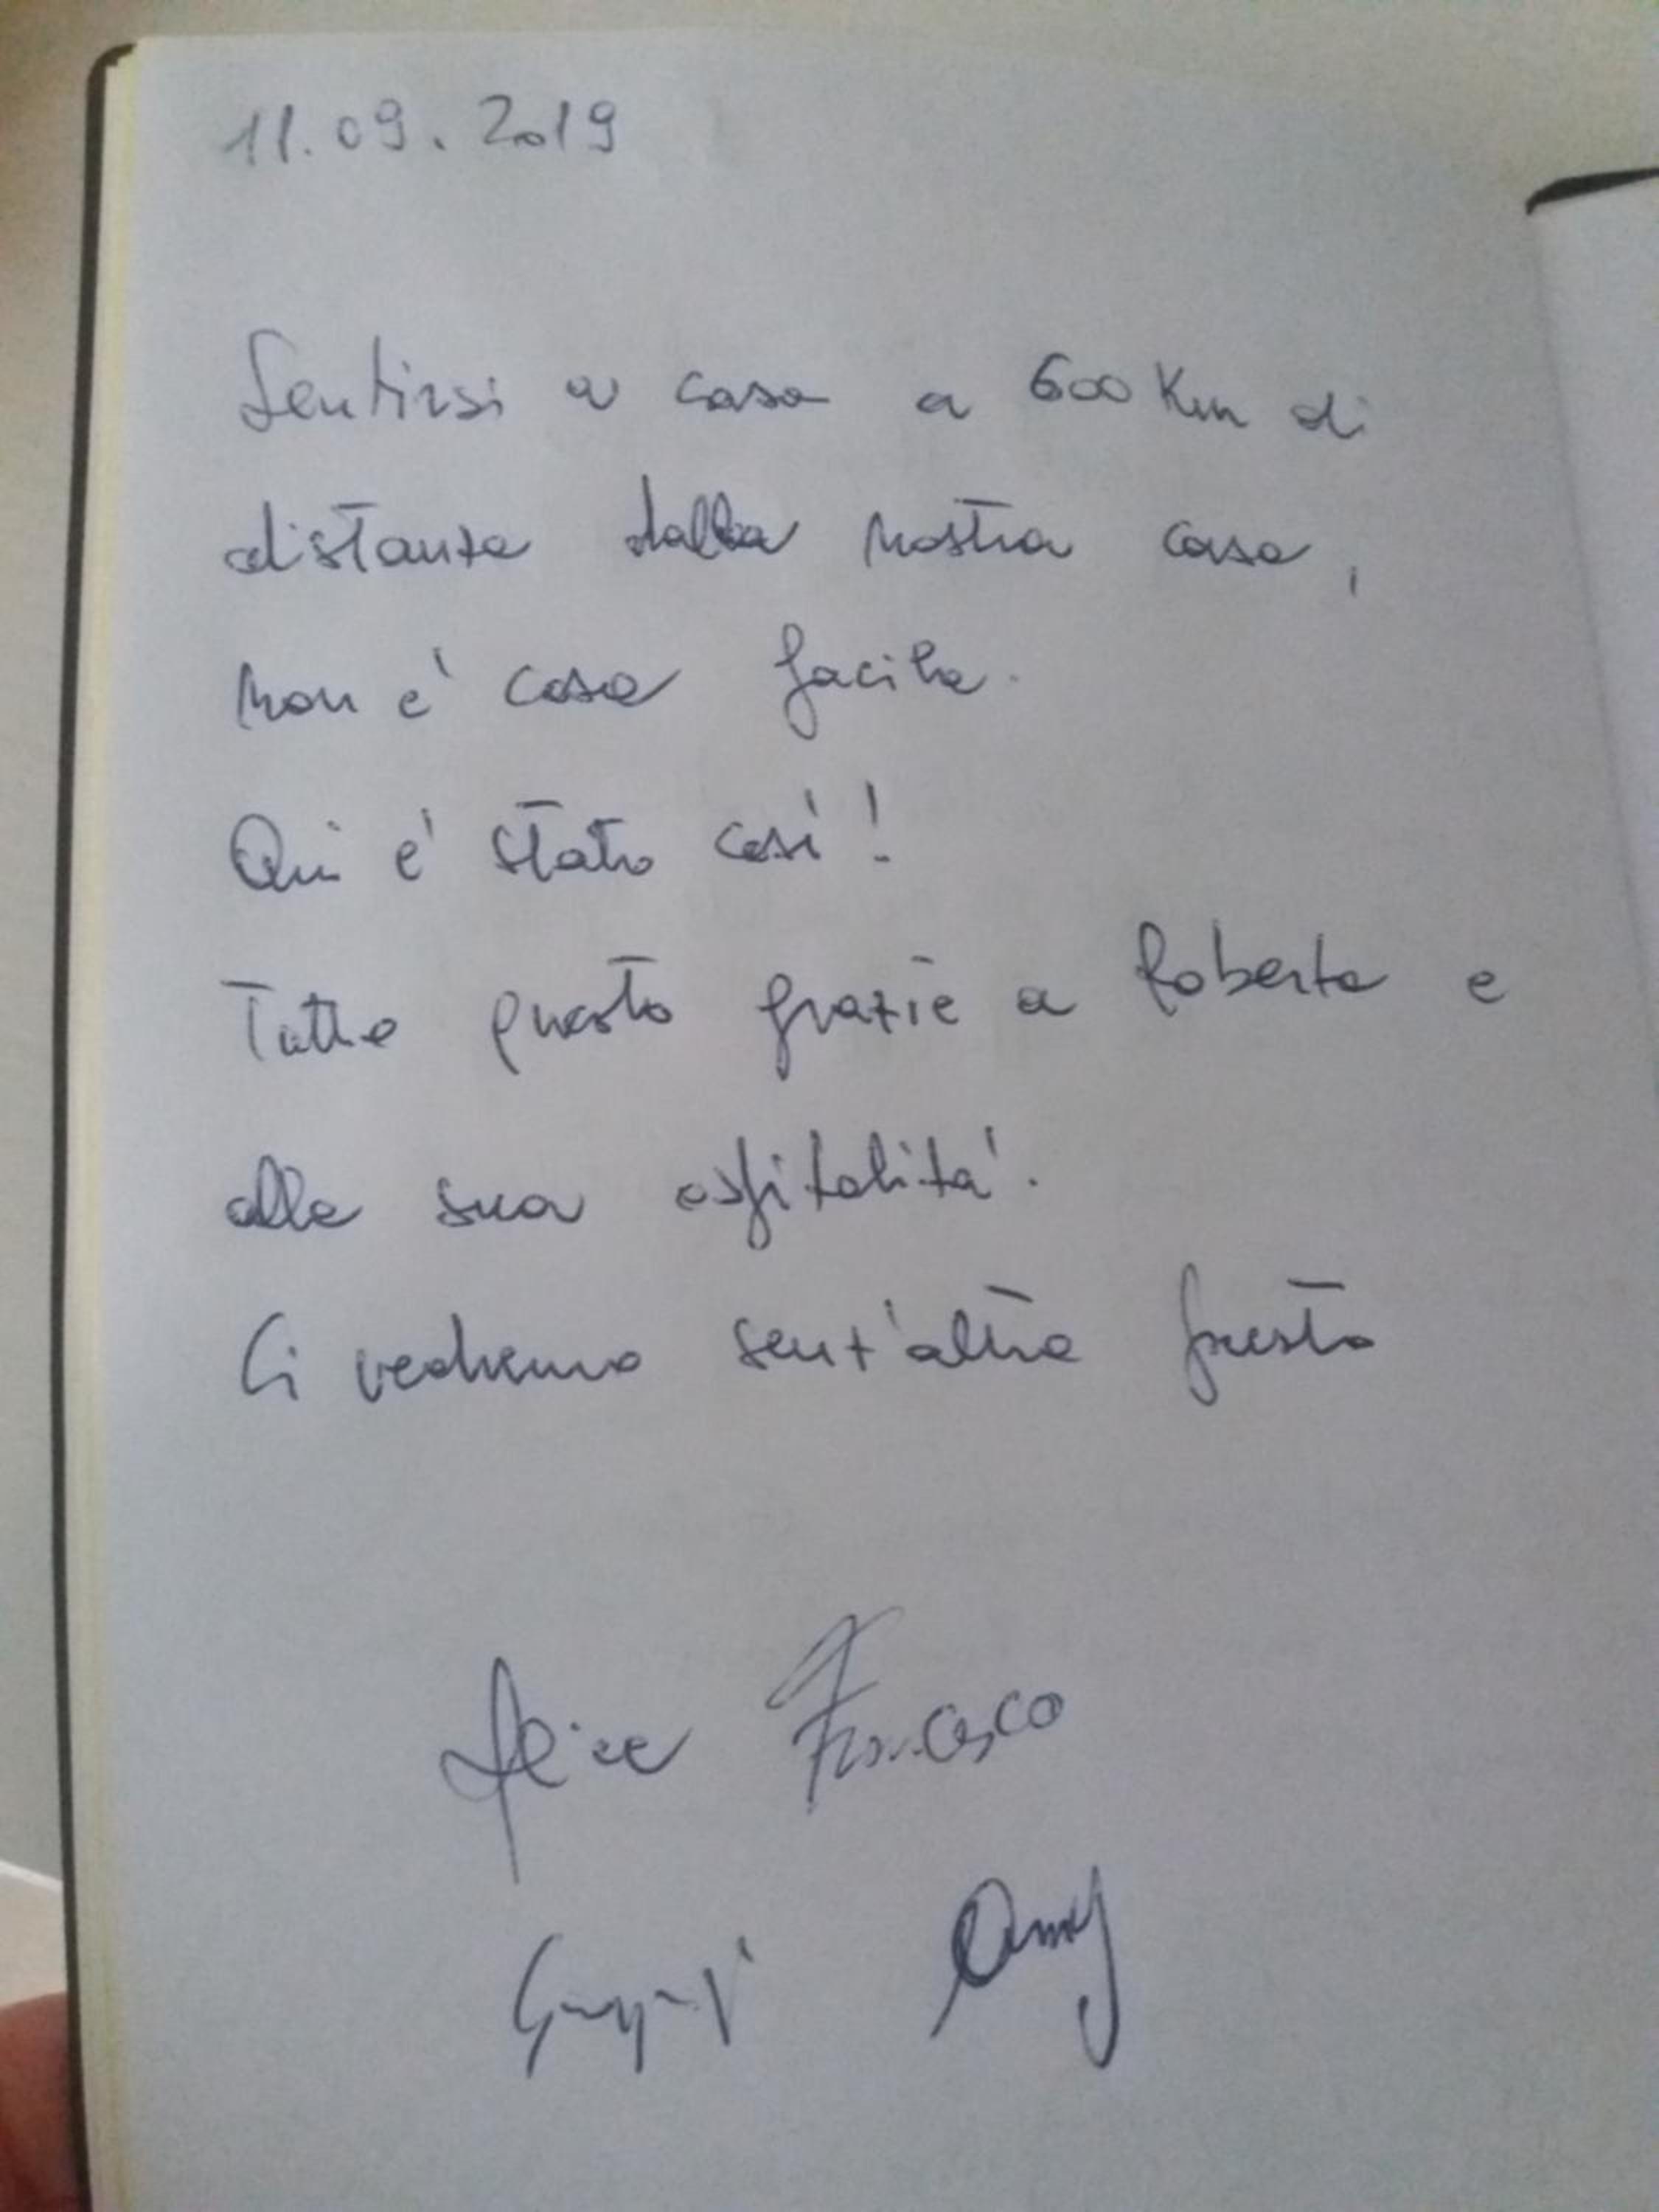 11.09.2019
Sentirsi a casa a 600 Km di
distanza dalla nostra casa,
non e' cosa facile.
Qui e' stato così!
Tutto questo grazie a Roberta e
alla sua ospitalita'.
Ci vedremo senz'altro presto
Alice Francesco
Amy